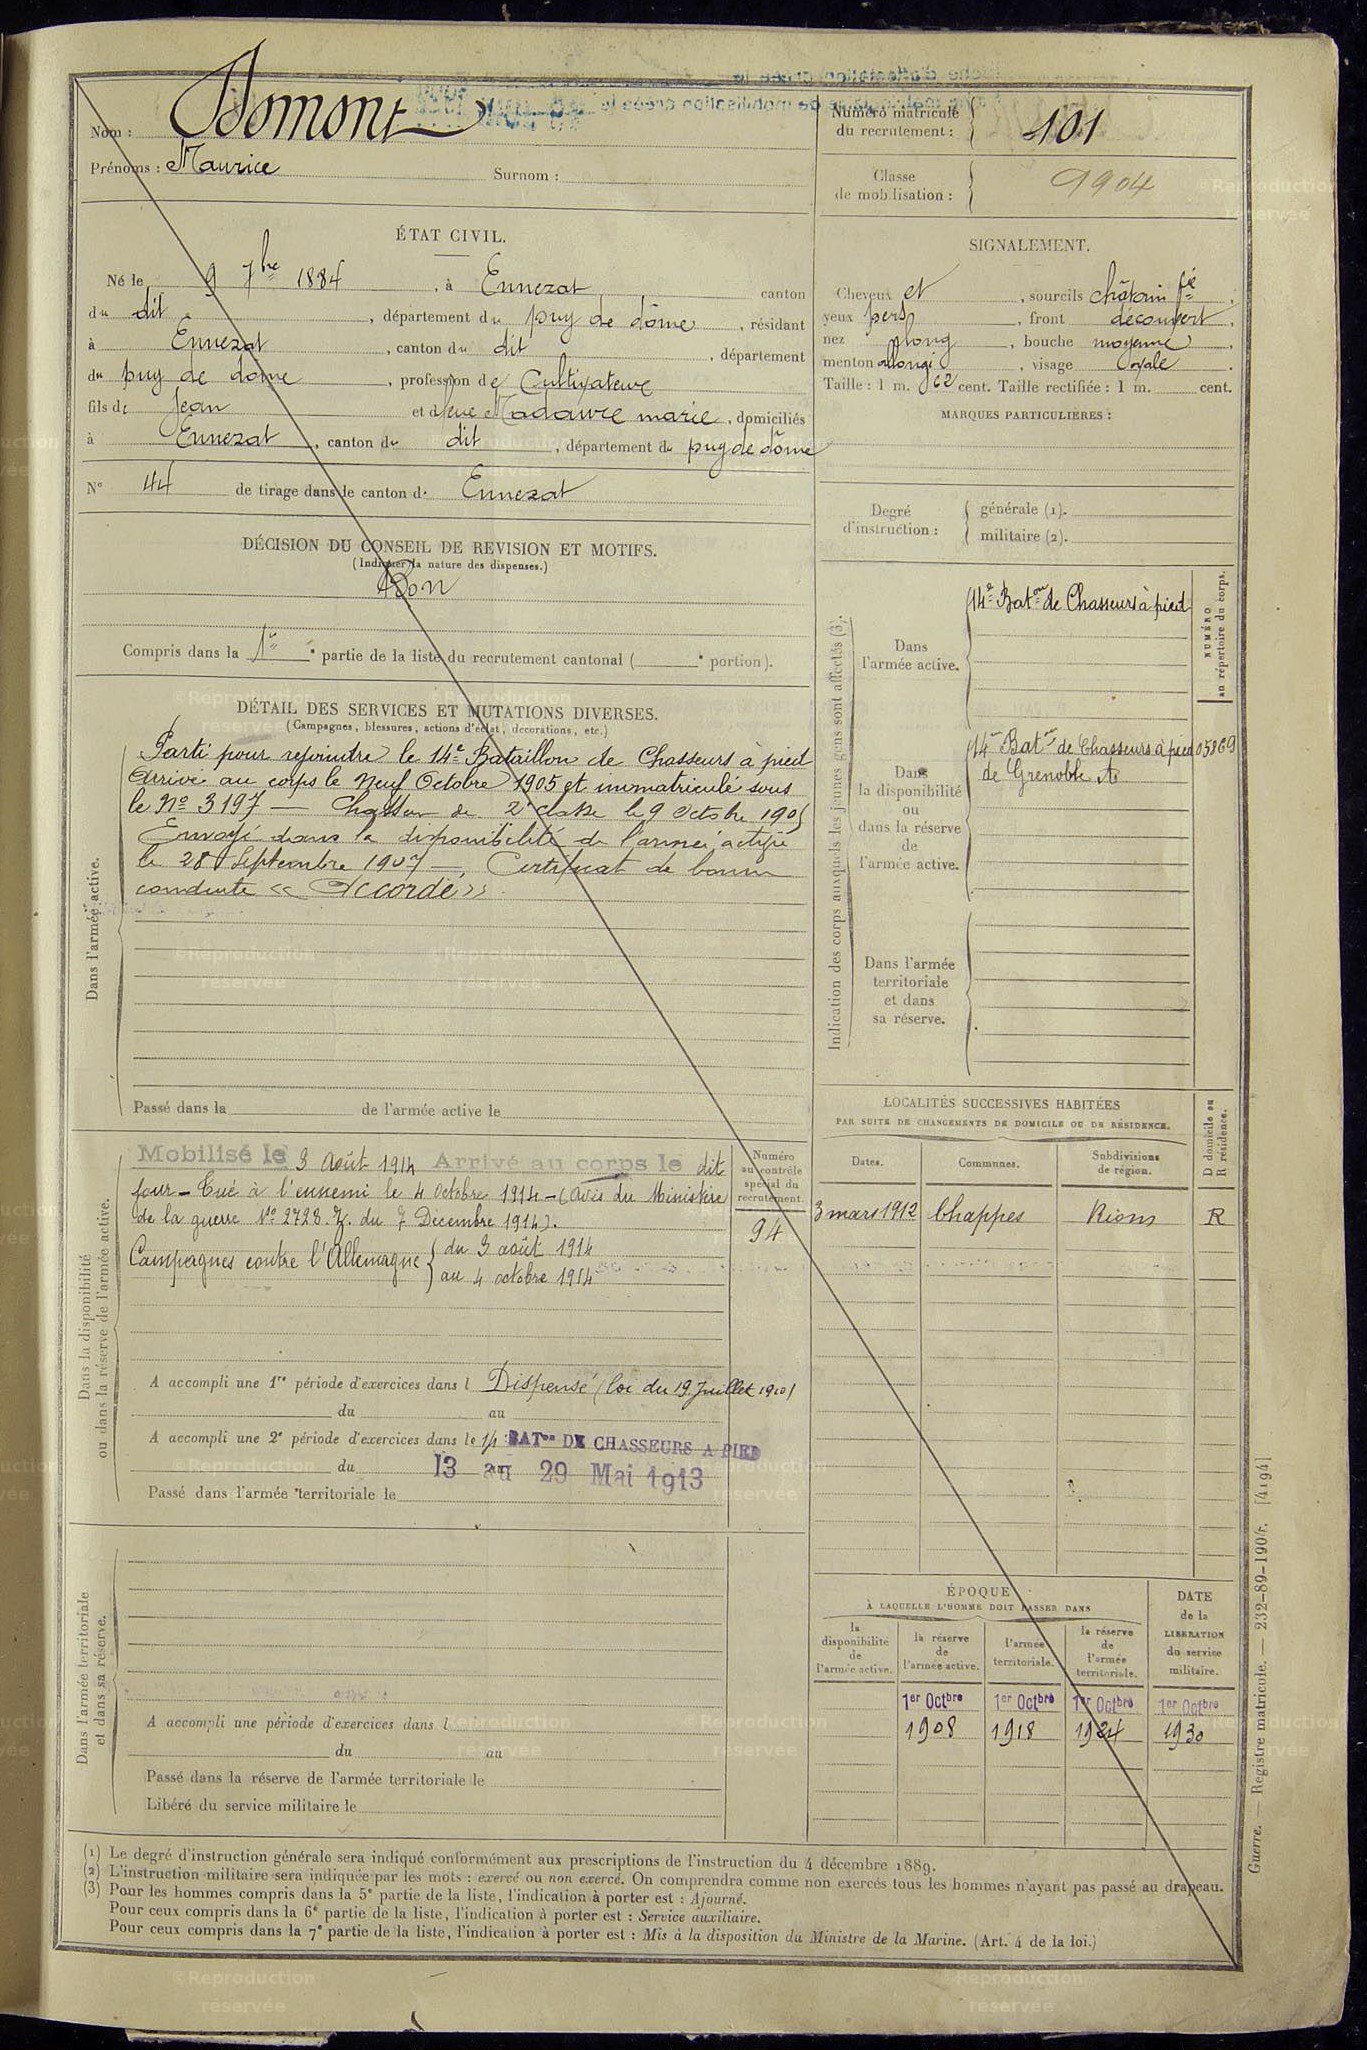 Nom : Domont
Prénoms : Maurice Surnom :
Numéro matricule du recrutement : 101
Classe de mobilisation : 1904
ÉTAT CIVIL.
Né le 9 7bre 1884, à Ennezat canton
du dit, département du puy de dôme, résidant
à Ennezat, canton du dit, département
du puy de dôme, profession de Cultivateur
fils de Jean et de feue Madawre marie, domiciliés
à Ennezat, canton du dit, département du puy de dôme
N° 44 de tirage dans le canton d. Ennezat
SIGNALEMENT.
Cheveux et, sourcils châtain fé,
yeux pers, front découvert,
nez long, bouche moyenne,
menton allongé, visage ovale.
Taille : 1 m. 62 cent. Taille rectifiée : 1 m. cent.
MARQUES PARTICULIÈRES :
Degré d'instruction : générale (1).
militaire (2).
DÉCISION DU CONSEIL DE REVISION ET MOTIFS.
(Indiquer la nature des dispenses.)
Bon
Compris dans la 1re partie de la liste du recrutement cantonal ( e portion).
DÉTAIL DES SERVICES ET MUTATIONS DIVERSES.
(Campagnes, blessures, actions d'éclat, décorations, etc.)
Dans l'armée active.
Parti pour rejoindre le 14e Bataillon de Chasseurs à pied
Arrivé au corps le Neuf Octobre 1905 et immatriculé sous
le No 3197 — Chasseur de 2e classe le 9 Octobre 1905
Envoyé dans la disponibilité de l'armée active
le 28 Septembre 1907 — Certificat de bonne
conduite « Accordé »
Passé dans la de l'armée active le
Indication des corps auxquels les jeunes gens sont affectés (3).
NUMÉRO au répertoire du corps.
Dans l'armée active.
14e Baton de Chasseurs à pied
Dans la disponibilité ou dans la réserve de l'armée active.
14e Baton de Chasseurs à pied 05869
de Grenoble A
Dans l'armée territoriale et dans sa réserve.
Dans la disponibilité ou dans la réserve de l'armée active.
Mobilisé le 3 Août 1914 Arrivé au corps le dit
jour — Tué à l'ennemi le 4 Octobre 1914 — (Avis du Ministère
de la guerre No 2728.Z. du 7 Décembre 1914).
Campagnes contre l'Allemagne { du 3 août 1914
au 4 octobre 1914
Numéro au contrôle spécial du recrutement.
94
A accompli une 1re période d'exercices dans l Dispensé (loi du 19 Juillet 1910)
du au
A accompli une 2e période d'exercices dans le 14 BATon DE CHASSEURS A PIED
du 13 au 29 Mai 1913
Passé dans l'armée territoriale le
LOCALITÉS SUCCESSIVES HABITÉES
PAR SUITE DE CHANGEMENTS DE DOMICILE OU DE RÉSIDENCE.
D domicile ou R résidence.
Dates. Communes. Subdivisions de région.
3 mars 1912 Chappes Riom R
Dans l'armée territoriale et dans sa réserve.
A accompli une période d'exercices dans l
du au
Passé dans la réserve de l'armée territoriale le
Libéré du service militaire le
ÉPOQUE
À LAQUELLE L'HOMME DOIT PASSER DANS
la disponibilité de l'armée active.
la réserve de l'armée active.
l'armée territoriale.
la réserve de l'armée territoriale.
DATE de la LIBÉRATION du service militaire.
1er Octbre 1er Octbre 1er Octbre 1er Octbre
1908 1918 1924 1930
(1) Le degré d'instruction générale sera indiqué conformément aux prescriptions de l'instruction du 4 décembre 1889.
(2) L'instruction militaire sera indiquée par les mots : exercé ou non exercé. On comprendra comme non exercés tous les hommes n'ayant pas passé au drapeau.
(3) Pour les hommes compris dans la 5e partie de la liste, l'indication à porter est : Ajourné.
Pour ceux compris dans la 6e partie de la liste, l'indication à porter est : Service auxiliaire.
Pour ceux compris dans la 7e partie de la liste, l'indication à porter est : Mis à la disposition du Ministre de la Marine. (Art. 4 de la loi.)
Guerre. — Registre matricule. — 232-89-1904. [4194]
©Reproduction réservée